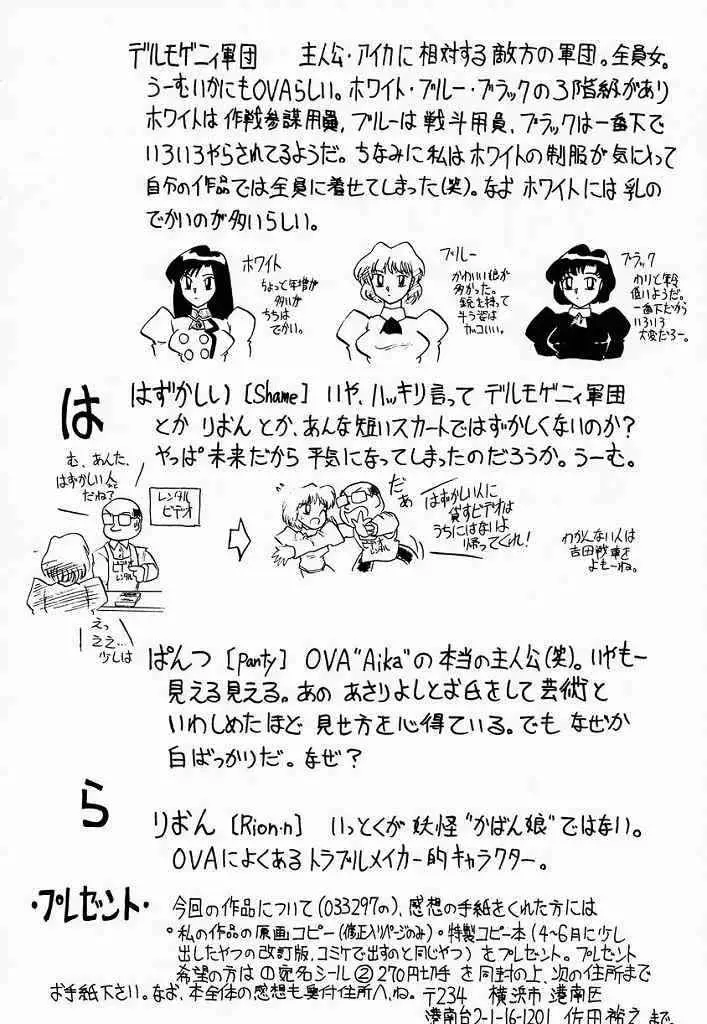 デルモゲニィ軍団 主人公・アイカに相対する敵方の軍団。全員女。
うーむいかにもOVAらしい。ホワイト・ブルー・ブラックの3階級があり
ホワイトは作戦参謀用員,ブルーは戦斗用員、ブラックは一番下で
いろいろやらされてるようだ。ちなみに私はホワイトの制服が気にいって
自分の作品では全員に着せてしまった(笑)。なお ホワイトには乳の
でかいのが多いらしい。
ホワイト
ちょっと年増が
多いが
ちちは
でかい。
ブルー
かわいい娘が
多かった。
銃を持って
斗う姿は
カッコいい。
ブラック
わりと年令
低いようだ。
一番下だから
いろいろ
大変だろー。
は
はずかしい [Shame] いや、ハッキリ言って デルモゲニィ軍団
とか りおん とか、あんな短いスカートではずかしくないのか?
やっぱ未来だから平気になってしまったのだろうか。うーむ。
む、あんた、
はずかしい人
だね?
レンタル
ビデオ
えっ
ええ…
少しは
だぁ
はずかしい人に
貸すビデオは
うちにはないよ
帰ってくれ!
わかんない人は
吉田戦車を
よもーね。
ぱんつ [Panty] OVA"Aika"の本当の主人公(笑)。いやもー
見える見える。あの あさりよしとお氏をして芸術と
いわしめたほど 見せ方を心得ている。でも なぜか
白ばっかりだ。なぜ?
ら
りおん [Rion・n] いっとくが妖怪"かばん娘"ではない。
OVAによくあるトラブルメイカー的キャラクター。
・プレゼント・
今回の作品について(033297の)、感想の手紙をくれた方には
°私の作品の原画コピー(修正入りページのみ)・特製コピー本(4〜6月に少し
出したやつの改訂版、コミケで出すのと同じやつ)をプレゼント。プレゼント
希望の方は①宛名シール②270円切手を同封の上、次の住所まで
お手紙下さい。なお、本全体の感想も奥付住所へ、ね。〒234 横浜市 港南区
港南台2-1-16-1201 佐田裕之まで